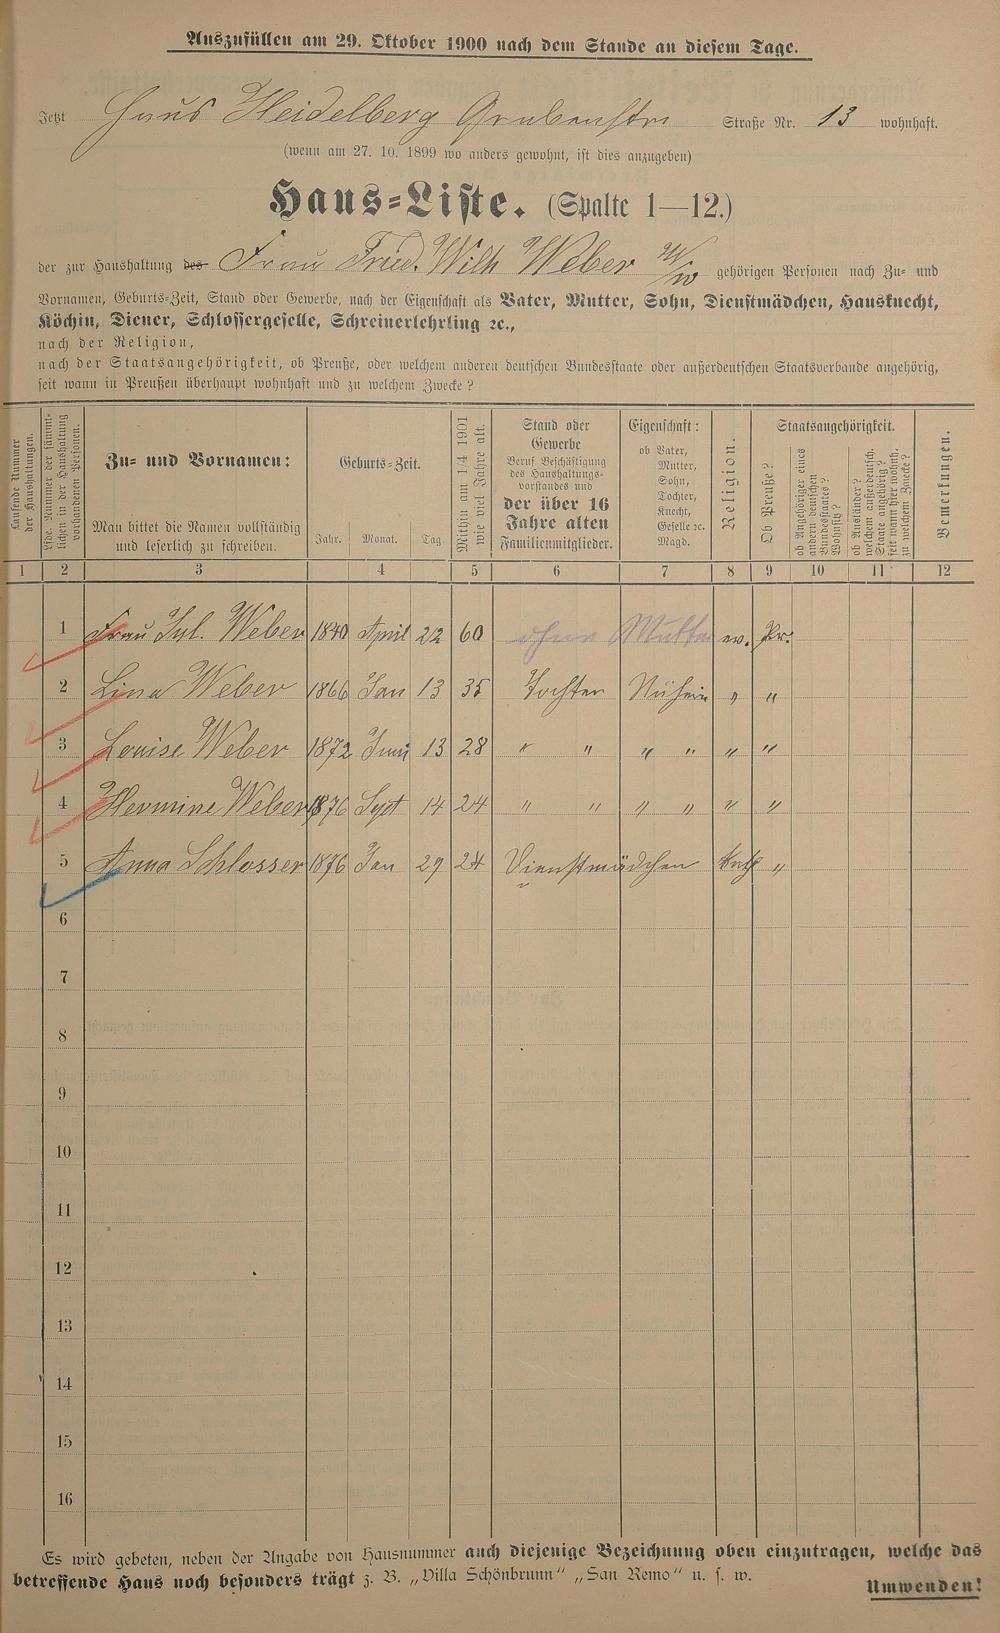 Auszufüllen am 29. Oktober 1900 nach dem Stande an diesem Tage.
Jetzt Haus Heidelberg Grabenstr. Straße Nr. 13 wohnhaft.
(wenn am 27. 10. 1899 wo anders gewohnt, ist dies anzugeben)
Haus-Liste. (Spalte 1—12.)
der zur Haushaltung des Frau Fried. Wilh Weber Ww gehörigen Personen nach Zu- und
Vornamen, Geburts-Zeit, Stand oder Gewerbe, nach der Eigenschaft als Vater, Mutter, Sohn, Dienstmädchen, Hausknecht,
Köchin, Diener, Schlossergeselle, Schreinerlehrling ꝛc.,
nach der Religion,
nach der Staatsangehörigkeit, ob Preuße, oder welchem anderen deutschen Bundesstaate oder außerdeutschen Staatsverbande angehörig,
seit wann in Preußen überhaupt wohnhaft und zu welchem Zwecke?
Laufende Nummer der Haushaltungen.
Lfde. Nummer der sämmtlichen in der Haushaltung vorhandenen Personen.
Zu- und Vornamen:
Man bittet die Namen vollständig
und leserlich zu schreiben.
Geburts-Zeit.
Jahr. Monat. Tag.
Mithin am 1/4 1901
wie viel Jahre alt.
Stand oder
Gewerbe
Beruf Beschäftigung
des Haushaltungs-
vorstandes und
der über 16
Jahre alten
Familienmitglieder.
Eigenschaft:
ob Vater,
Mutter,
Sohn,
Tochter,
Knecht,
Geselle ꝛc.
Magd.
Religion.
Staatsangehörigkeit.
Ob Preuße?
ob Angehöriger eines
andern deutschen
Bundesstaates?
Wohnsitz?
ob Ausländer?
welchem außerdeutsch.
Staate angehörig?
seit wann hier wohnh.
zu welchem Zwecke?
Bemerkungen.
1 2 3 4 5 6 7 8 9 10 11 12
1 Frau Jul. Weber 1840 April 22 60 ohne Mutter ev. Pr.
2 Lina Weber 1866 Jan 13 35 Tochter " "
3 Louise Weber 1872 Juni 13 28 " " " " " "
4 Hermine Weber 1876 Sept 14 24 " " " " " "
5 Anna Schlosser 1876 Jan 29 24 Dienstmädchen kath "
6
7
8
9
10
11
12
13
14
15
16
Es wird gebeten, neben der Angabe von Hausnummer auch diejenige Bezeichnung oben einzutragen, welche das
betreffende Haus noch besonders trägt z. B. „Villa Schönbrunn" „San Remo" u. s. w.
Umwenden!